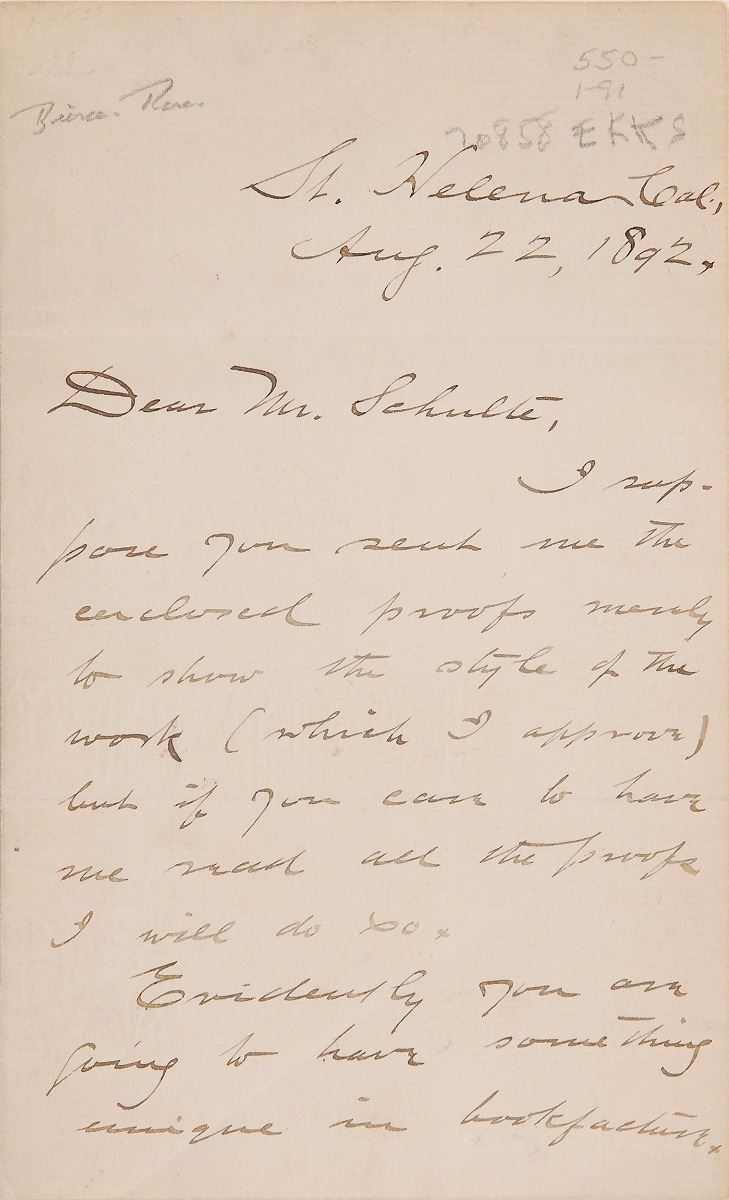 550-
1-91
70858 EKKS
St. Helena Cal.,
Aug. 22, 1892.
Dear Mr. Schulte,
I sup-
pose you sent me the
enclosed proofs merely
to show the style of the
work (which I approve)
but if you care to have
me read all the proofs
I will do so.
Evidently you are
going to have something
unique in bookfacture.